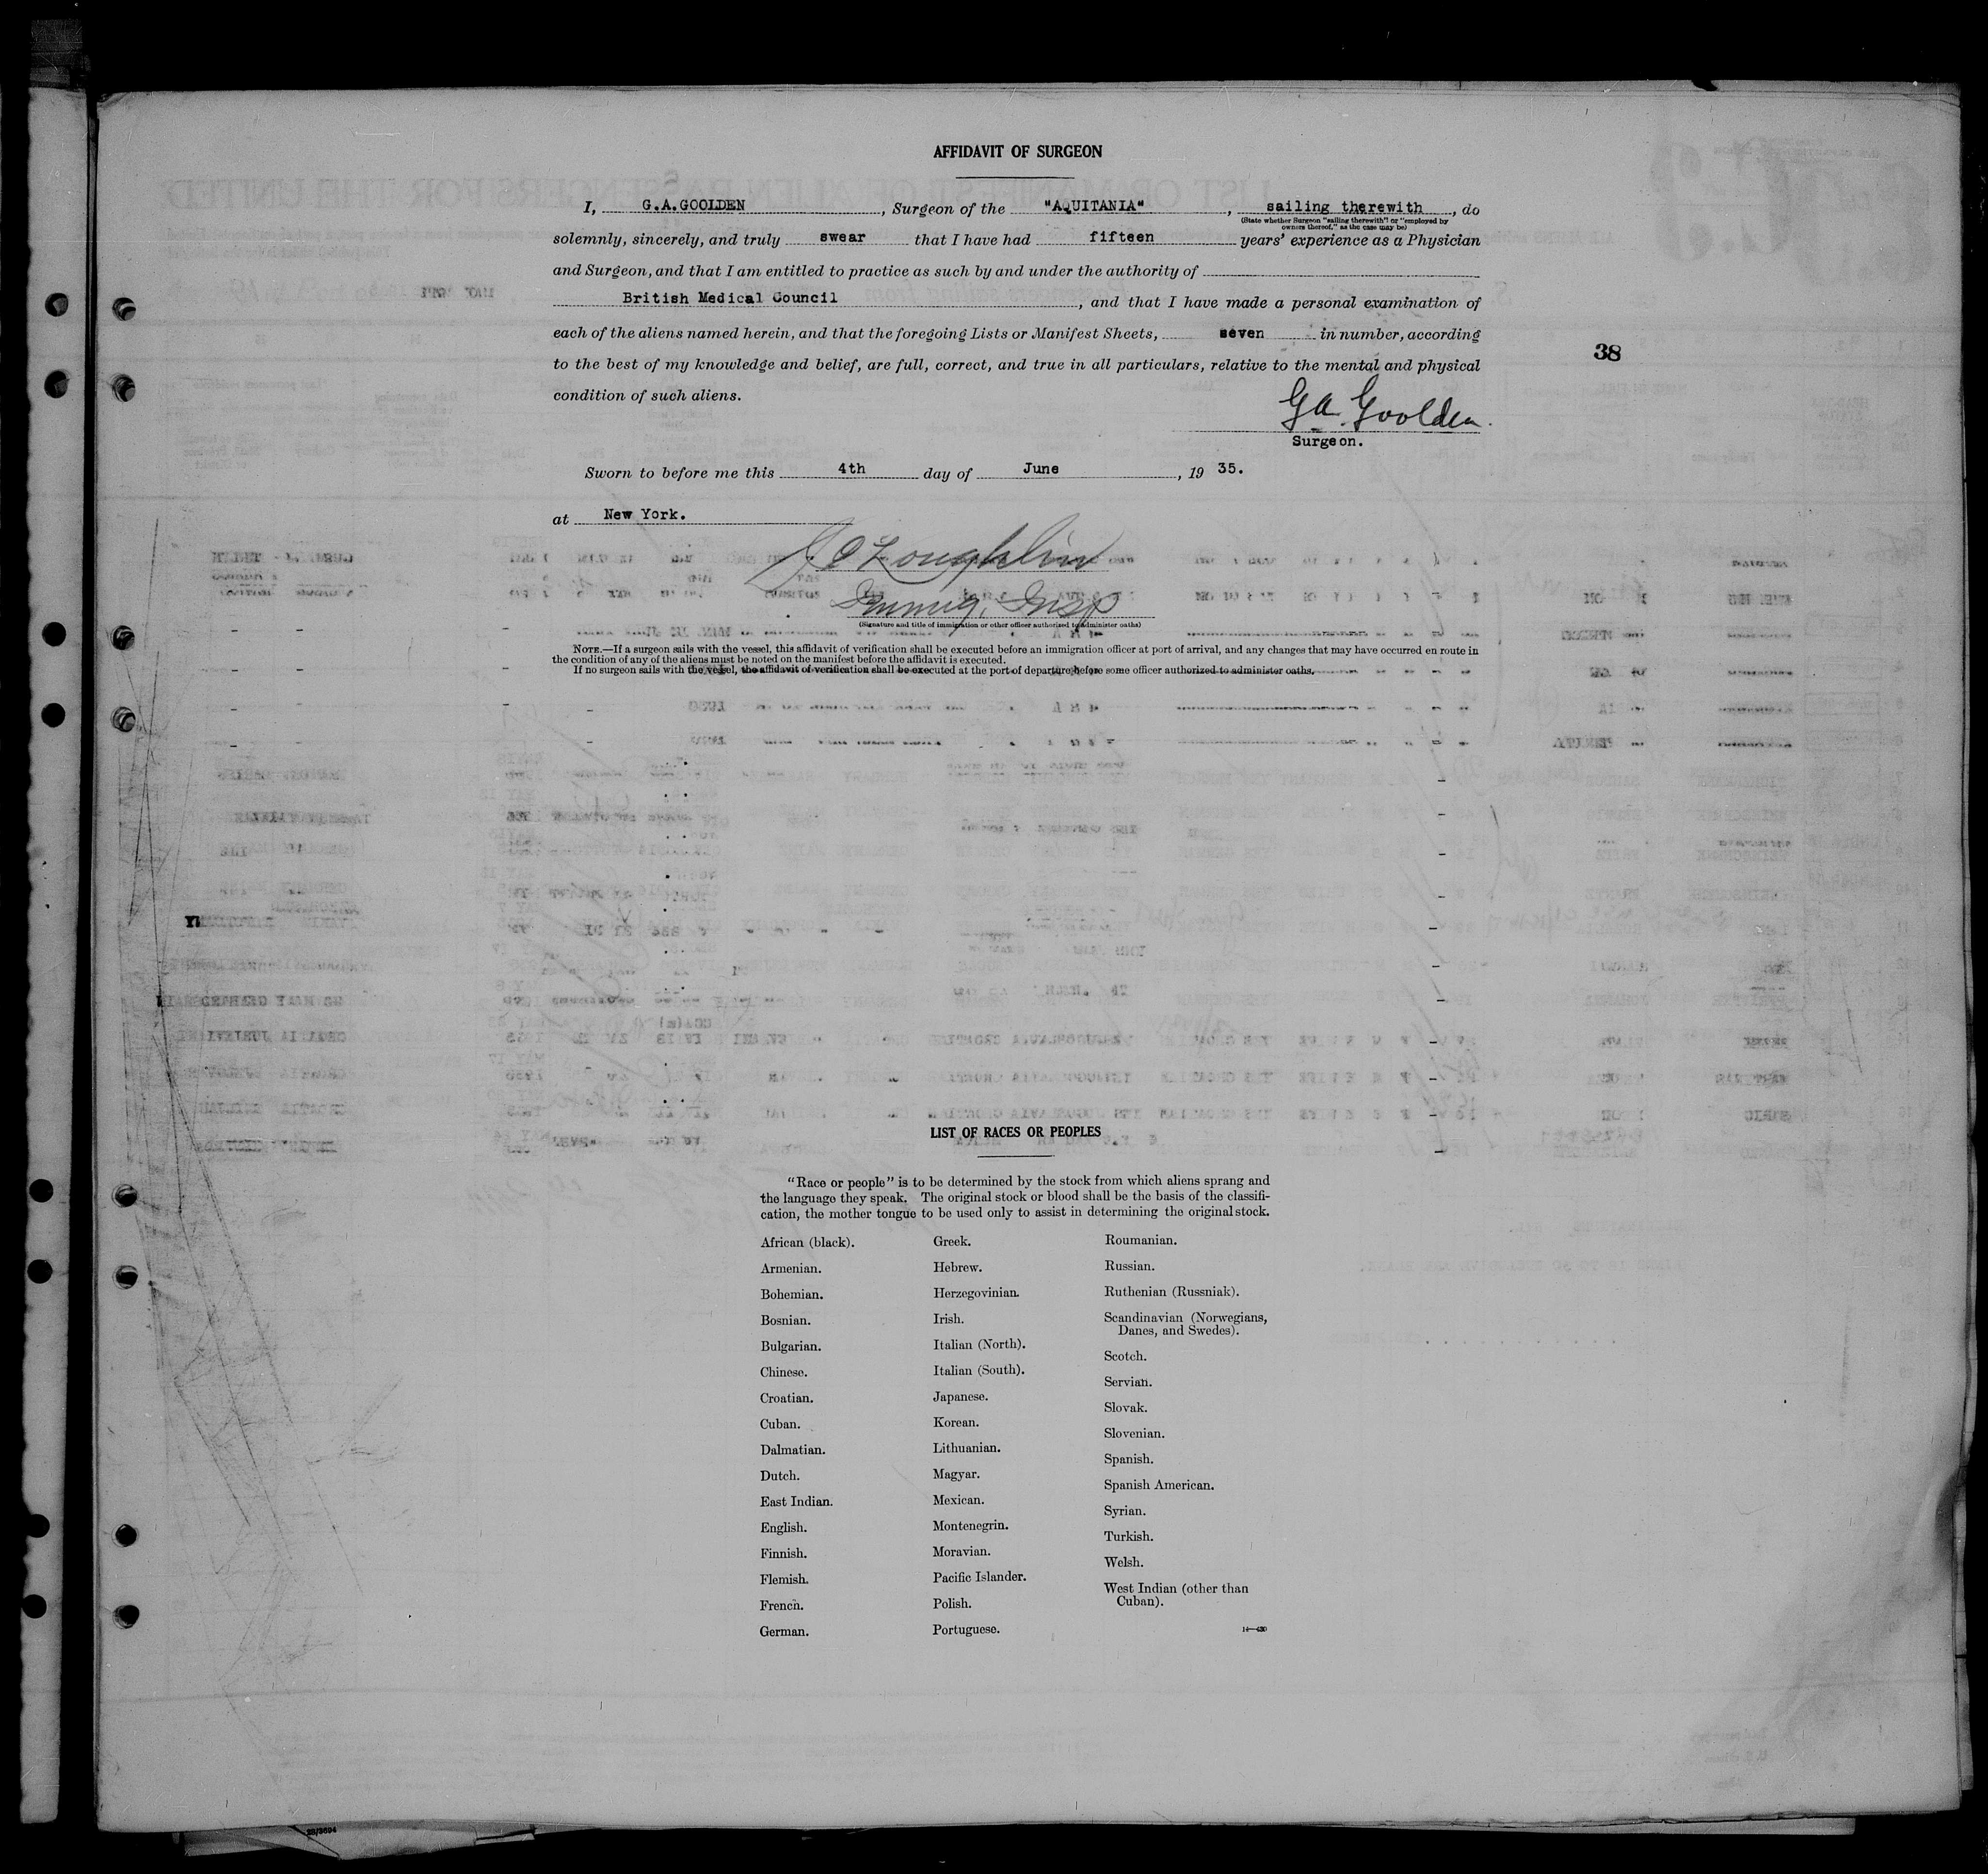 AFFIDAVIT OF SURGEON
I, G.A.GOOLDEN, Surgeon of the "AQUITANIA", sailing therewith, do
(State whether Surgeon "sailing therewith" or "employed by
owners thereof," as the case may be)
solemnly, sincerely, and truly swear that I have had fifteen years' experience as a Physician
and Surgeon, and that I am entitled to practice as such by and under the authority of
British Medical Council, and that I have made a personal examination of
each of the aliens named herein, and that the foregoing Lists or Manifest Sheets, seven in number, according
38
to the best of my knowledge and belief, are full, correct, and true in all particulars, relative to the mental and physical
condition of such aliens.
G A Goolden.
Surgeon.
Sworn to before me this 4th day of June, 19 35.
at New York.
Loughlin
Immig. Insp
(Signature and title of immigration or other officer authorized to administer oaths)
NOTE.—If a surgeon sails with the vessel, this affidavit of verification shall be executed before an immigration officer at port of arrival, and any changes that may have occurred en route in
the condition of any of the aliens must be noted on the manifest before the affidavit is executed.
If no surgeon sails with the vessel, the affidavit of verification shall be executed at the port of departure before some officer authorized to administer oaths.
LIST OF RACES OR PEOPLES
"Race or people" is to be determined by the stock from which aliens sprang and
the language they speak. The original stock or blood shall be the basis of the classifi-
cation, the mother tongue to be used only to assist in determining the original stock.
African (black).
Armenian.
Bohemian.
Bosnian.
Bulgarian.
Chinese.
Croatian.
Cuban.
Dalmatian.
Dutch.
East Indian.
English.
Finnish.
Flemish.
French.
German.
Greek.
Hebrew.
Herzegovinian.
Irish.
Italian (North).
Italian (South).
Japanese.
Korean.
Lithuanian.
Magyar.
Mexican.
Montenegrin.
Moravian.
Pacific Islander.
Polish.
Portuguese.
Roumanian.
Russian.
Ruthenian (Russniak).
Scandinavian (Norwegians,
Danes, and Swedes).
Scotch.
Servian.
Slovak.
Slovenian.
Spanish.
Spanish American.
Syrian.
Turkish.
Welsh.
West Indian (other than
Cuban).